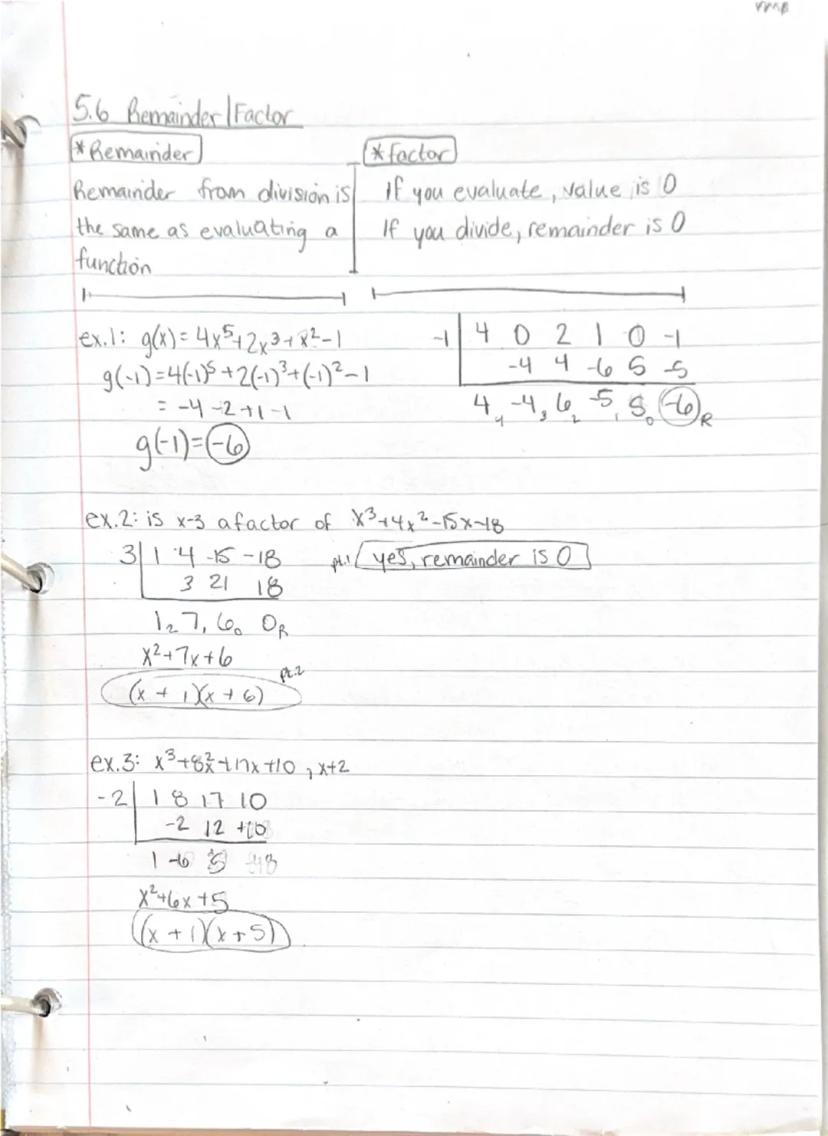 5.6 Remainder|Factor
*Remainder
Remainder from division is
the same as evaluating a
function
*factor
If you evaluate, value is 0
If you divide, remainder is 0
ex.1: g(x) = 4x⁵+2x³+x²-1
g(-1)=4(-1)⁵+2(-1)³+(-1)²-1
= -4 -2 +1 -1
g(-1)= -6
-1| 4 0 2 1 0 -1
-4 4 -6 5 -5
4₄ -4₃ 6₂ -5₁ 5₀ -6 R
ex.2: is x-3 a factor of x³+4x²-15x-18
3| 1 4 -15 -18
3 21 18
1₂ 7₁ 6₀ 0R
pt.1 yes, remainder is 0
x²+7x+6
pt.2
(x + 1)(x + 6)
ex.3: x³+8x²+17x+10, x+2
-2| 1 8 17 10
-2 12
1 6 5
x²+6x+5
(x + 1)(x + 5)